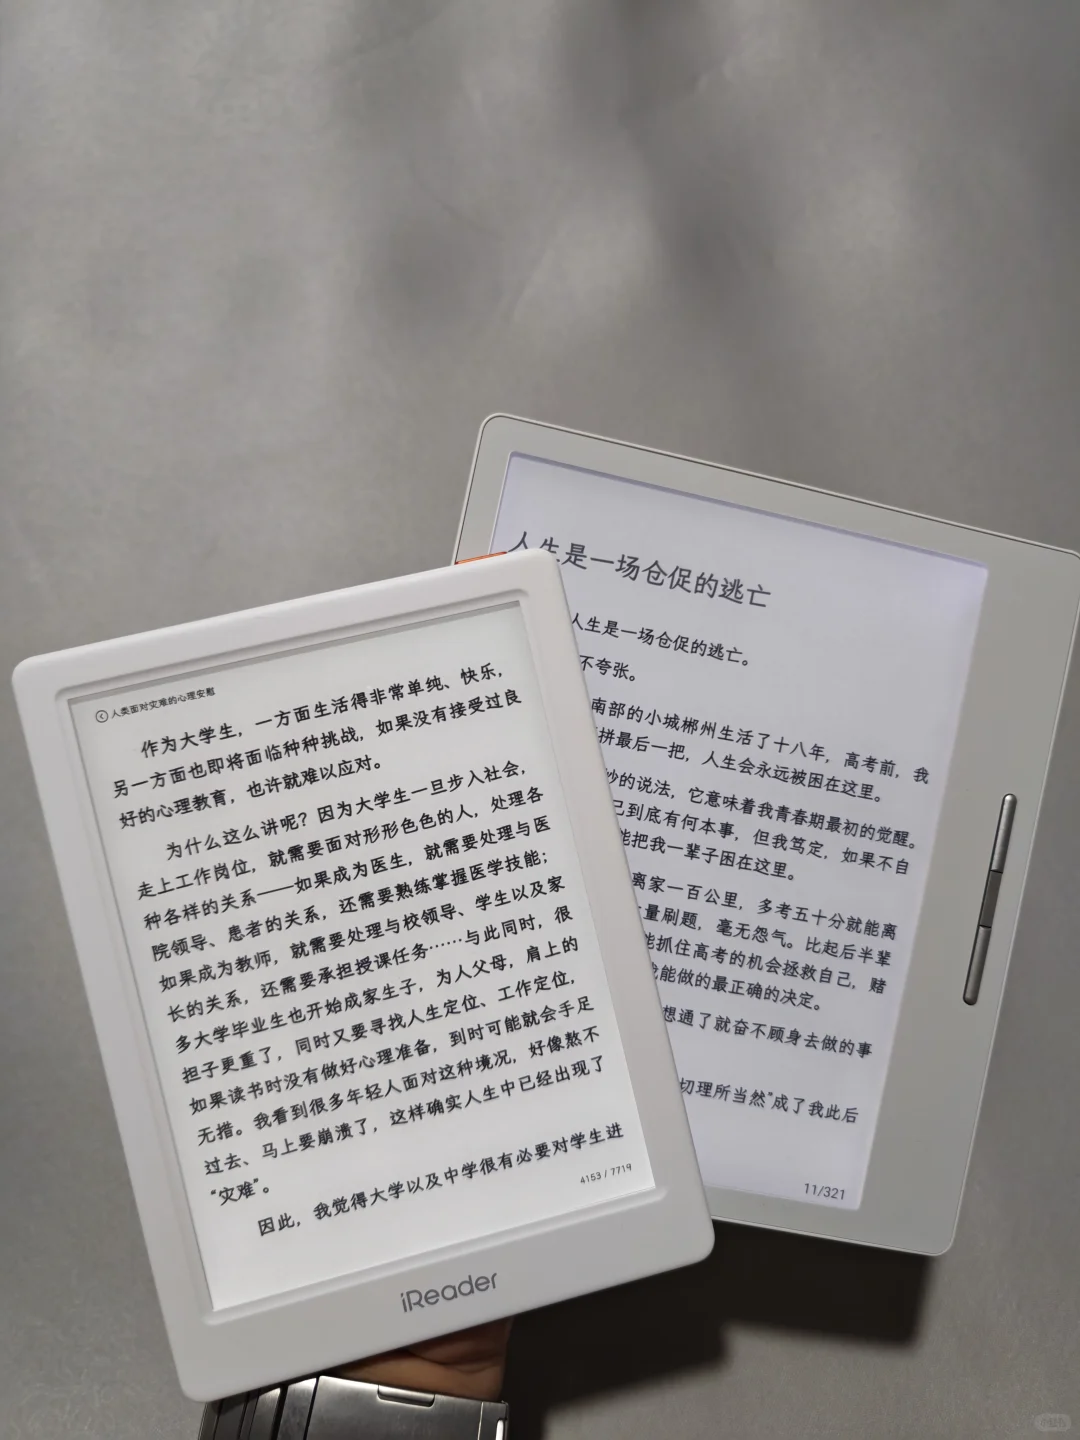 人类面对灾难的心理安慰
作为大学生，一方面生活得非常单纯、快乐，
另一方面也即将面临种种挑战，如果没有接受过良
好的心理教育，也许就难以应对。
为什么这么讲呢？因为大学生一旦步入社会，
走上工作岗位，就需要面对形形色色的人，处理各
种各样的关系——如果成为医生，就需要处理与医
院领导、患者的关系，还需要熟练掌握医学技能；
如果成为教师，就需要处理与校领导、学生以及家
长的关系，还需要承担授课任务……与此同时，很
多大学毕业生也开始成家生子，为人父母，肩上的
担子更重了，同时又要寻找人生定位、工作定位，
如果读书时没有做好心理准备，到时可能就会手足
无措。我看到很多年轻人面对这种境况，好像熬不
过去、马上要崩溃了，这样确实人生中已经出现了
“灾难”。
因此，我觉得大学以及中学很有必要对学生进
4153 / 7719
iReader
人生是一场仓促的逃亡
人生是一场仓促的逃亡。
不夸张。
南部的小城郴州生活了十八年，高考前，我
拼最后一把，人生会永远被困在这里。
妙的说法，它意味着我青春期最初的觉醒。
己到底有何本事，但我笃定，如果不自
能把我一辈子困在这里。
离家一百公里，多考五十分就能离
量刷题，毫无怨气。比起后半辈
能抓住高考的机会拯救自己，赌
我能做的最正确的决定。
想通了就奋不顾身去做的事
切理所当然”成了我此后
11/321